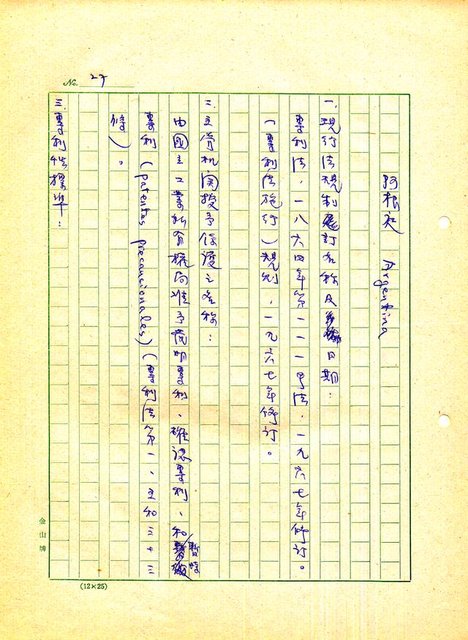 No. 27
阿根廷 Argentina
一、現行法規制訂名称及日期：
專利法，一八六四年第一一一号法，一九六七年修訂。
（專利法施行）規則，一九六七年修訂。
二、主管机関授予保護之名称：
由國立工業所有權局准予發明專利、確認專利、和暫時
專利（patents precausionales）（專利法第一、五和三十三
條）。
三、專利性標準：
金山牌
(12×25)